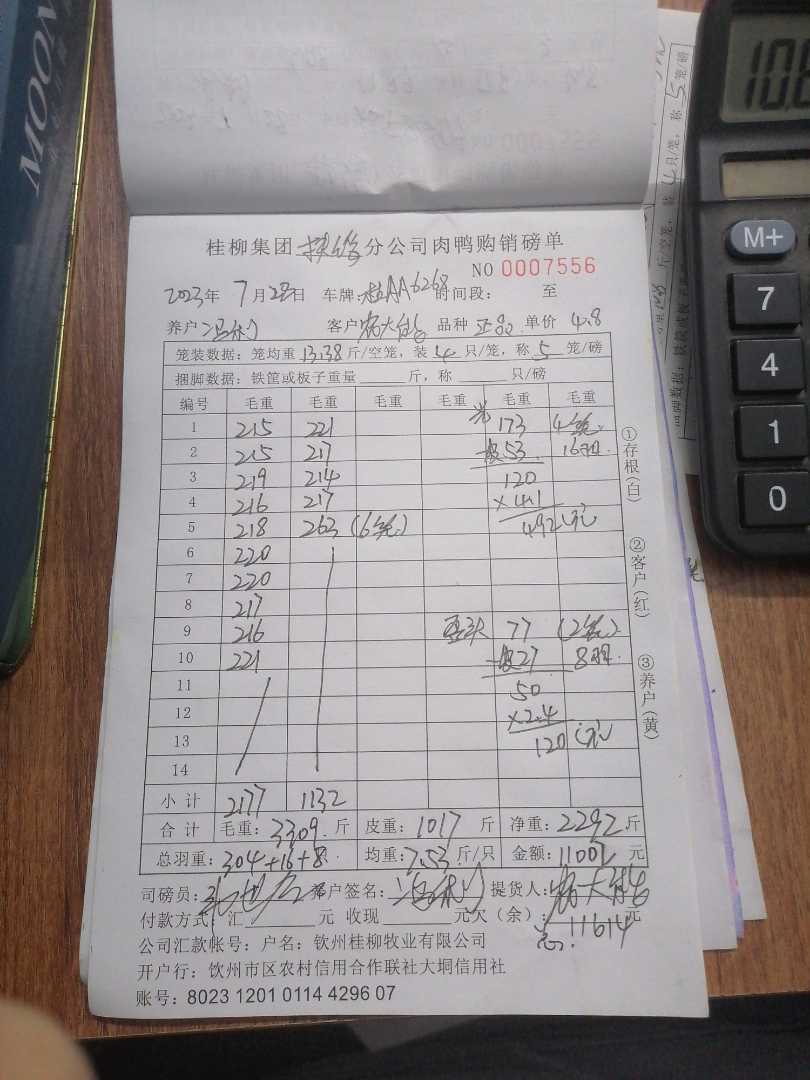 MOON
10.8
M+
7
4
1
0
桂柳集团 扶绥 分公司肉鸭购销磅单
NO 0007556
2023年 7月28日 车牌:桂AA6268 时间段: 至
养户 冯 客户 品种 正品 单价 4.8
笼装数据:笼均重 13.38 斤/空笼,装 4 只/笼,称 5 笼/磅
捆脚数据:铁筐或板子重量 斤,称 只/磅
编号 毛重 毛重 毛重 毛重 毛重 毛重
1 215 221 173 4笼
2 215 217 -皮53 16羽
3 219 214 120
4 216 217 ×4.1
5 218 263 (6笼) 492(元)
6 220
7 220
8 217
9 216 77 (2笼)
10 221 -皮27 8羽
11 50
12 ×2.4
13 120(元)
14
小计 2177 1132
合计 毛重:3309斤 皮重:1017斤 净重:2292斤
总羽重:304+16+8 均重:7.53斤/只 金额:11002元
司磅员: 养户签名: 提货人:
付款方式:汇 元 收现 元欠(余):11614元
公司汇款帐号:户名:钦州桂柳牧业有限公司
开户行:钦州市区农村信用合作联社大垌信用社
账号:8023 1201 0114 4296 07
①存根(白)
②客户(红)
③养户(黄)